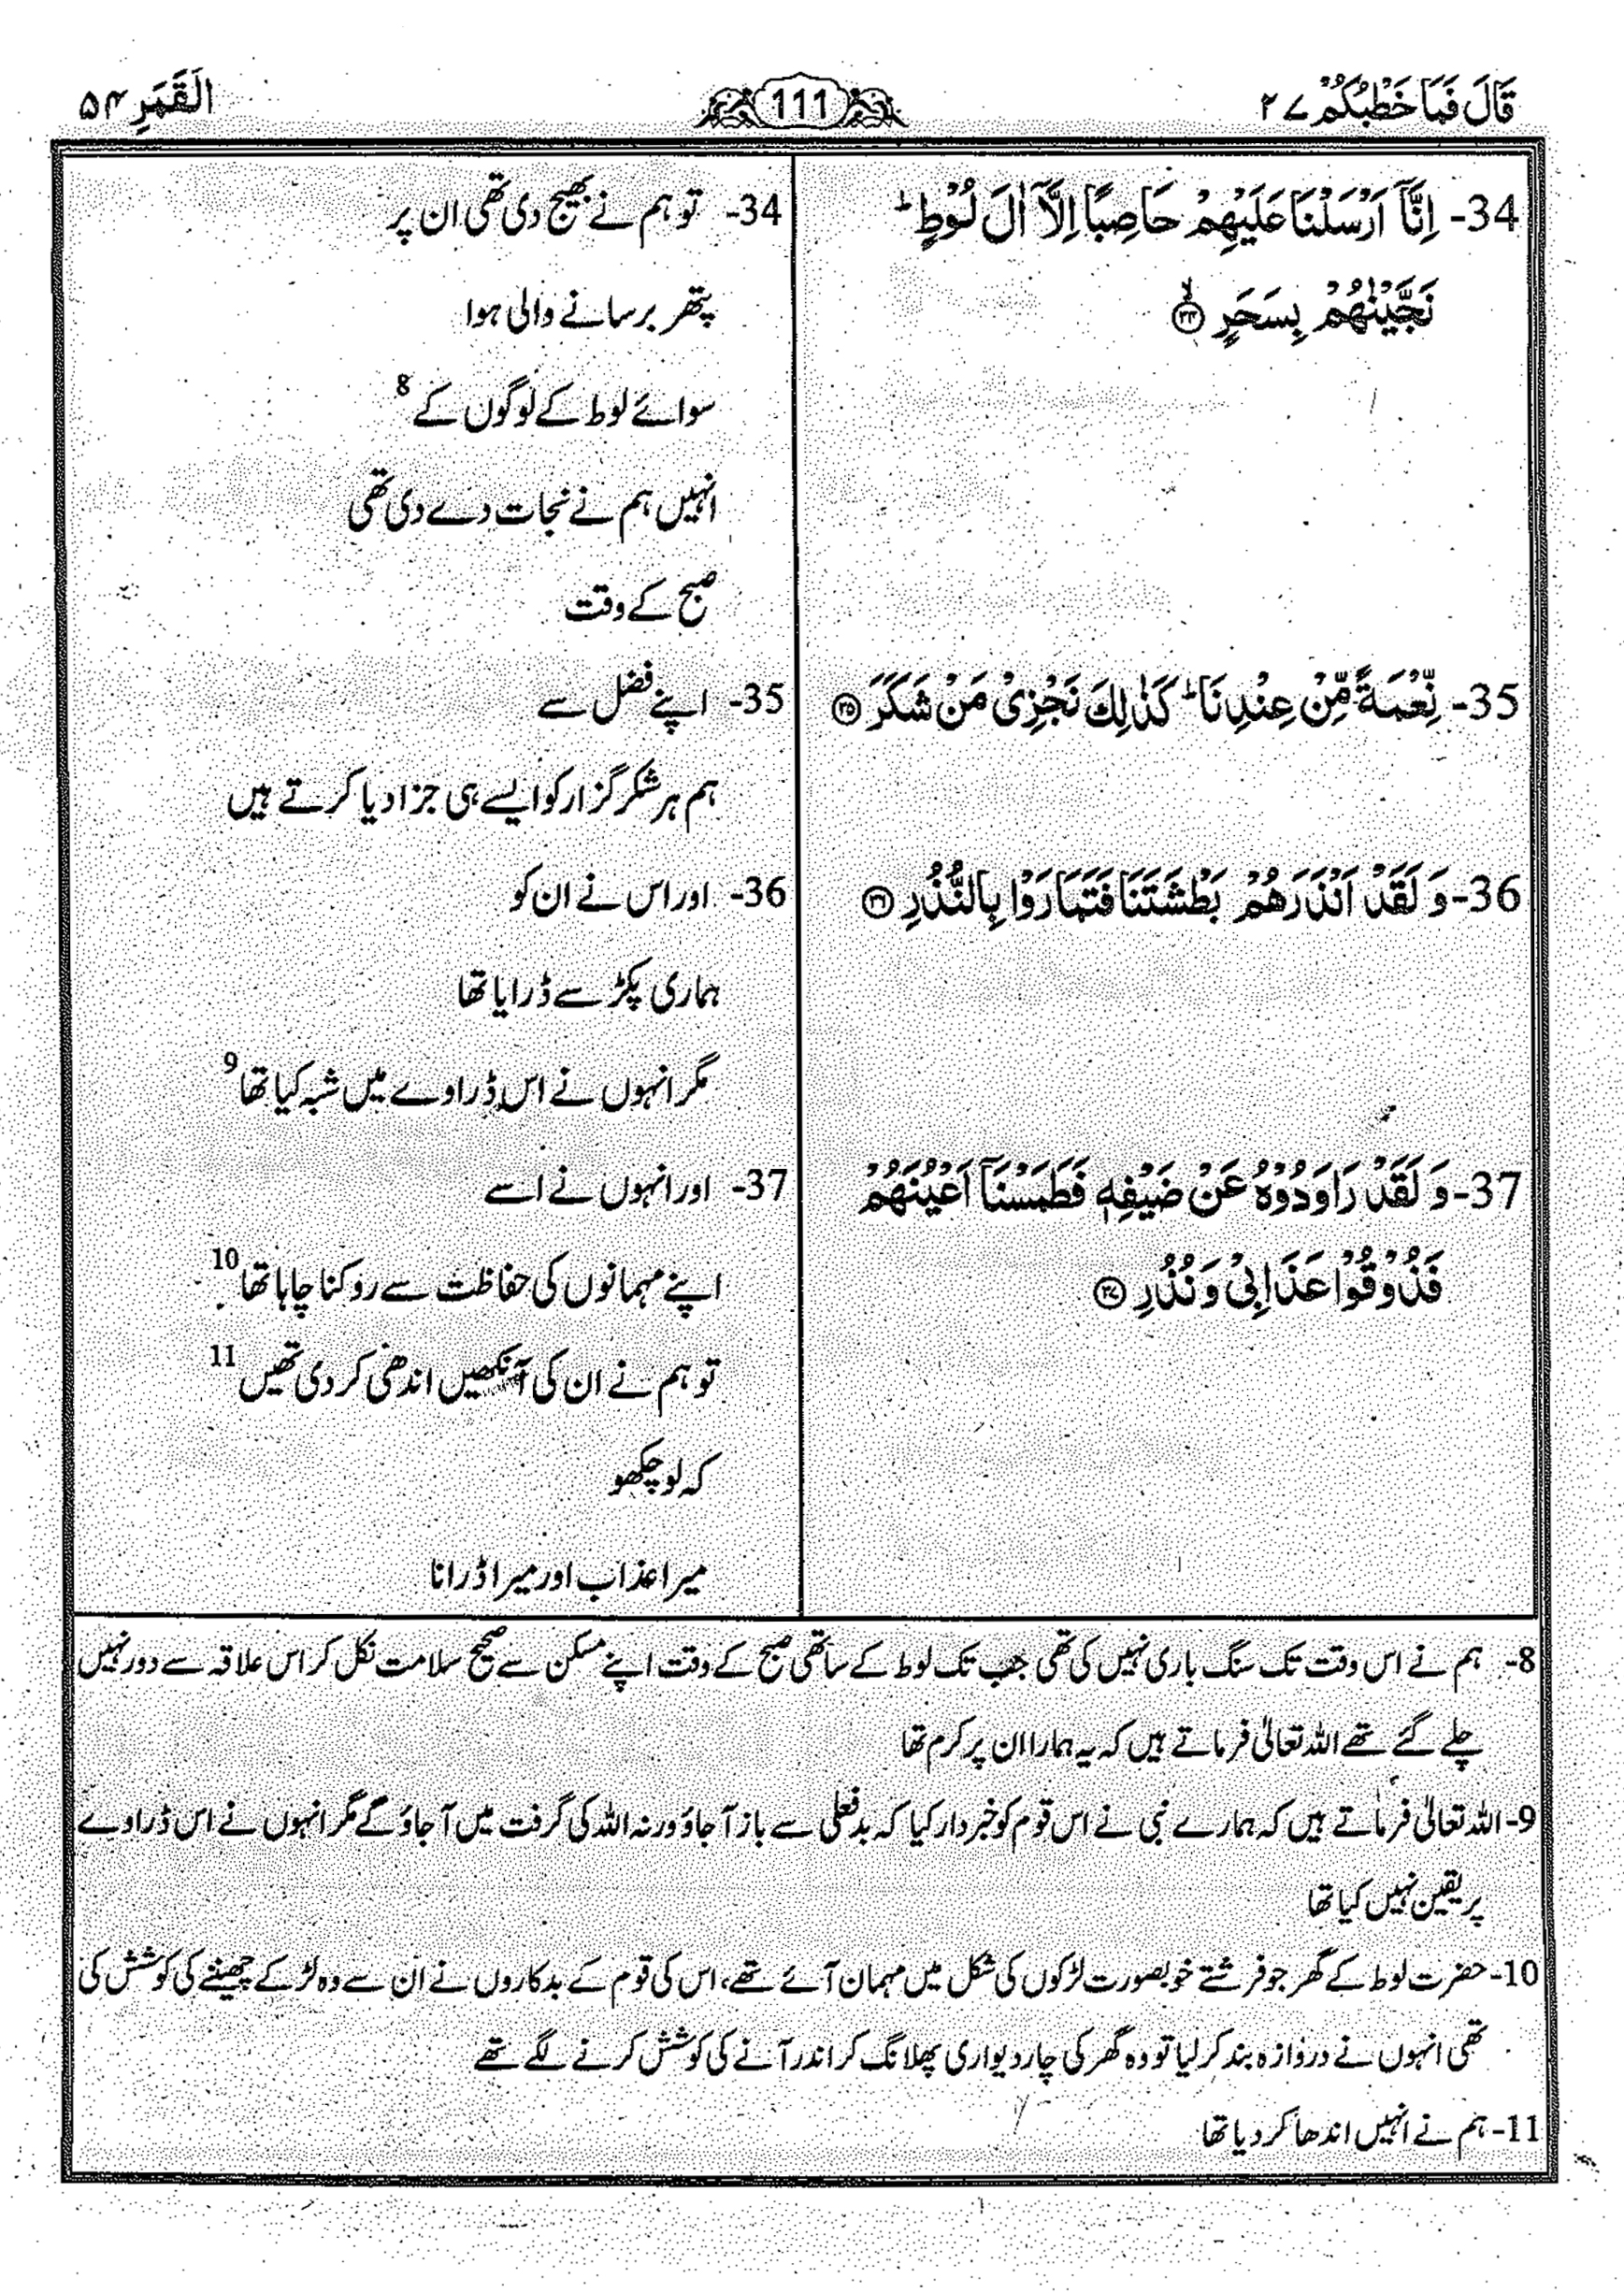 قَالَ فَمَا خَطْبُكُمْ ۲۷
111
اَلْقَمَرِ ۵۴
34- اِنَّاۤ اَرْسَلْنَا عَلَيْهِمْ حَاصِبًا اِلَّاۤ اٰلَ لُوْطٍ ؕ
نَجَّيْنٰهُمْ بِسَحَرٍ ﴿۳۴﴾ۙ
35- نِّعْمَةً مِّنْ عِنْدِنَا ؕ كَذٰلِكَ نَجْزِیْ مَنْ شَكَرَ ﴿۳۵﴾
36- وَ لَقَدْ اَنْذَرَهُمْ بَطْشَتَنَا فَتَمَارَوْا بِالنُّذُرِ ﴿۳۶﴾
37- وَ لَقَدْ رَاوَدُوْهُ عَنْ ضَيْفِهٖ فَطَمَسْنَاۤ اَعْيُنَهُمْ
فَذُوْقُوْا عَذَابِیْ وَ نُذُرِ ﴿۳۷﴾
34- تو ہم نے بھیج دی تھی ان پر
پتھر برسانے والی ہوا
سوائے لوط کے لوگوں کے 8
انہیں ہم نے نجات دے دی تھی
صبح کے وقت
35- اپنے فضل سے
ہم ہر شکر گزار کو ایسے ہی جزا دیا کرتے ہیں
36- اور اس نے ان کو
ہماری پکڑ سے ڈرایا تھا
مگر انہوں نے اس ڈراوے میں شبہ کیا تھا 9
37- اور انہوں نے اسے
اپنے مہمانوں کی حفاظت سے روکنا چاہا تھا 10
تو ہم نے ان کی آنکھیں اندھی کر دی تھیں 11
کہ لو چکھو
میرا عذاب اور میرا ڈرانا
8- ہم نے اس وقت تک سنگ باری نہیں کی تھی جب تک لوط کے ساتھی صبح کے وقت اپنے مسکن سے صحیح سلامت نکل کر اس علاقہ سے دور نہیں
چلے گئے تھے اللہ تعالیٰ فرماتے ہیں کہ یہ ہمارا ان پر کرم تھا
9- اللہ تعالیٰ فرماتے ہیں کہ ہمارے نبی نے اس قوم کو خبردار کیا کہ بدفعلی سے باز آ جاؤ ورنہ اللہ کی گرفت میں آ جاؤ گے مگر انہوں نے اس ڈراوے
پر یقین نہیں کیا تھا
10- حضرت لوط کے گھر جو فرشتے خوبصورت لڑکوں کی شکل میں مہمان آئے تھے، اس کی قوم کے بدکاروں نے ان سے وہ لڑکے چھیننے کی کوشش کی
تھی انہوں نے دروازہ بند کر لیا تو وہ گھر کی چار دیواری پھلانگ کر اندر آنے کی کوشش کرنے لگے تھے
11- ہم نے انہیں اندھا کر دیا تھا